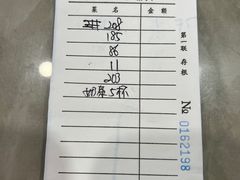 菜名 金额
208
185
86
11
203
奶茶5杯
第一联 存根
No 0162198